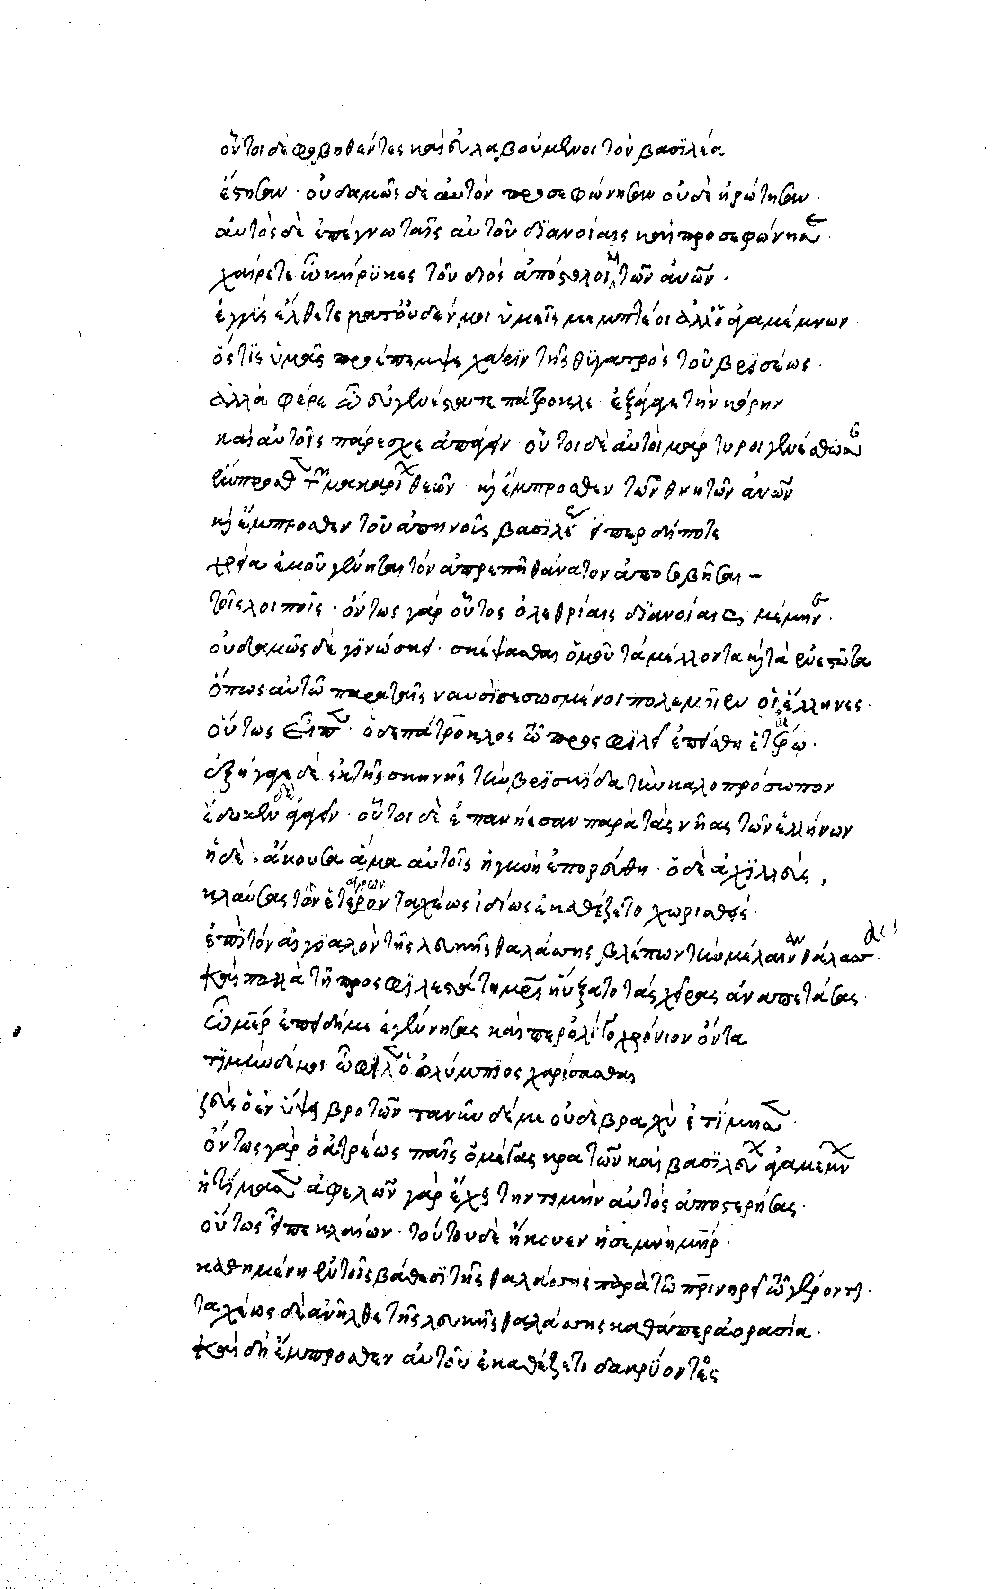 οὗτοι δὲ φοβηθέντες καὶ εὐλαβούμενοι τὸν βασϊλέα
ἔστησαν · οὐδαμῶς δὲ αὐτὸν προσεφώνησαν οὐδὲ ἠρώτησαν ·
αὐτὸς δὲ ἐπέγνω ταῖς αὐτοῦ διανοίαις καὶ προσεφώνησε ·
χαίρετε ὦ κήρϋκες τοῦ διὸς ἀπόστολοι καὶ τῶν ἀνῶν ·
ἐγγὺς ἔλθετε κατ' οὐδέν μοι ὑμεῖς μεμπτέοι ἀλλ' ὁ ἀγαμέμνων
ὅστις ὑμᾶς προέπεμψε χάριν τῆς θϋγατρὸς τοῦ βρϊσέως ·
ἀλλὰ φέρε ὦ εὐγενέστατε πάτροκλε ἐξάγαγε τὴν κόρην
καὶ αὐτοῖς πάρεσχε ἀπάγειν · οὗτοι δὲ αὐτοὶ μάρτυροι γενέσθωσαν
ἔμπροσθεν τῶν μακαρίων θεῶν · καὶ ἔμπροσθεν τῶν θνητῶν ἀνῶν
καὶ ἔμπροσθεν τοῦ ἀπηνοῦς βασϊλέως εἴπερ δήποτε
χρεία ἐμοῦ γένηται τὸν ἀπρεπῆ θάνατον ἀποσοβῆσαι –
τοῖς λοιποῖς · ὄντως γὰρ οὗτος ὀλεθρίαις διανοίαις μέμηνε ·
οὐδαμῶς δὲ γινώσκει · σκέψασθαι ὁμοῦ τὰ μέλλοντα καὶ τὰ ἐνεστῶτα
ὅπως αὐτῶ παρὰ ταῖς ναυσὶ σεσωσμένοι πολεμήσειεν οἱ ἕλληνες ·
οὕτως εἶπε · ὁ δὲ πάτροκλος τῶ προσφιλεῖ ἐπείσθη ἑταίρω ·
ἐξήγαγε δὲ ἐκ τῆς σκηνῆς τὴν βρϊσηΐδα τὴν καλοπρόσωπον
ἔδωκεν δὲ ἄγειν · οὗτοι δὲ ἐπανήεσαν παρὰ τὰς νῆας τῶν ἑλλήνων
ἡ δὲ ἄκουσα ἅμα αὐτοῖς ἡ γυνὴ ἐπορεύθη · ὁ δὲ ἀχϊλλεὺς
κλαύσας τῶν ἑτέρων ταχέως ἰδίως ἐκαθέζετο χωρισθείς
ἐπὶ τὸν αἰγϊαλὸν τῆς λευκῆς θαλάσσης βλέπων τὴν μέλαιναν θάλασσαν ·
καὶ πολλὰ τῆ προσφιλεστάτη μητρὶ ηὔξατο τὰς χεῖρας ἀναπετάσας ·
ὦ μῆτερ ἐπειδή με ἐγέννησας καίπερ ὀλιγοχρόνιον ὄντα
τϊμήν δέ μοι ὤφειλεν ὁ ὀλύμπϊος χαρίσασθαι
ζεὺς ὁ ἐν ὕψει βροντῶν τανῦν δέ με οὐδὲ βραχὺ ἐτίμησεν ·
ὄντως γὰρ ὁ ἀτρέως παῖς ὁ μεγάλως κρατῶν καὶ βασϊλεύων ἀγαμέμνων
ἠτίμασεν ἀφελὼν γὰρ ἔχει τὴν τιμὴν αὐτὸς ἀποστερήσας ·
οὕτως εἶπε κλαίων · τούτου δὲ ἤκουεν ἡ σεμνὴ μήτηρ ·
καθημένη ἐν τοῖς βάθεσϊ τῆς θαλάσσης παρὰ τῶ πρϊ νηρεῖ τῶ γέροντι ·
ταχέως δὲ ἀνῆλθε τῆς λευκῆς θαλάσσης καθάπερ ἀορασία ·
καὶ δὴ ἔμπροσθεν αὐτοῦ ἐκαθέζετο δακρύοντος